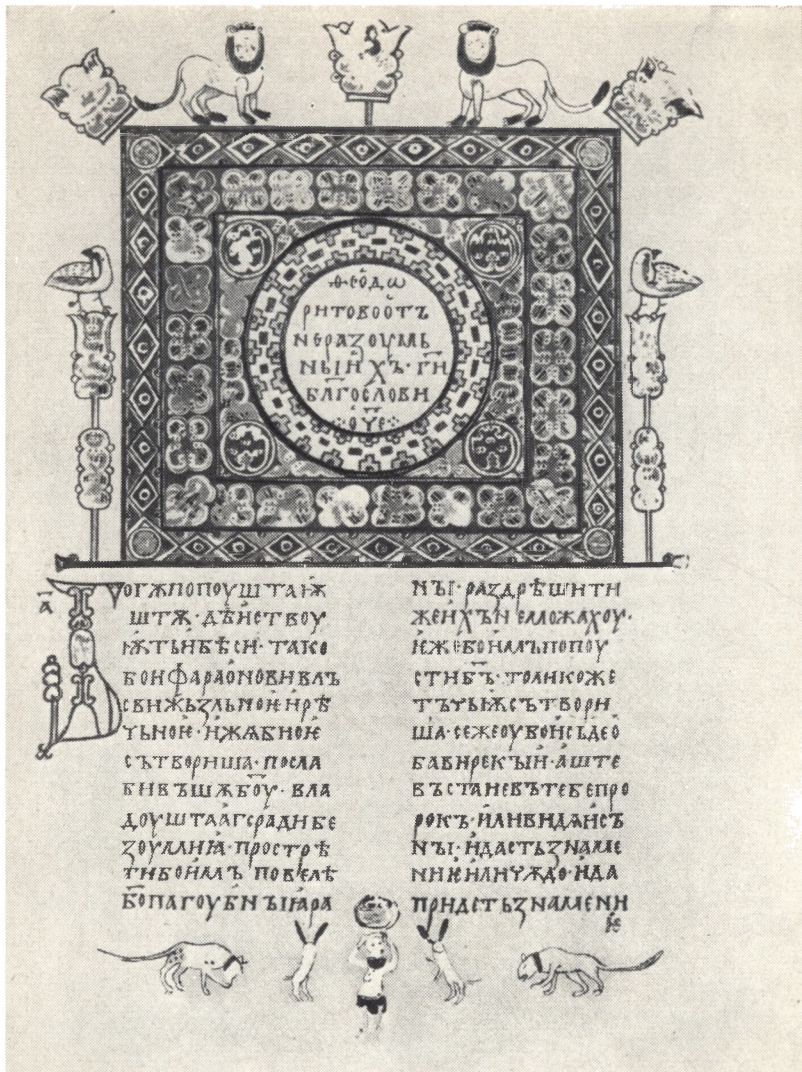 ѳеодѡ
ритовоотъ
неразоумь
ныихъ· г҃и
бл҃агослови
·о҃че·
а҃
огѫпопоуштаѭ
штѫ· дѣиствоу
ѭтьибѣси· тако
боифараоновивлъ
свижьзльмоиирѣ
чьноѥ· ижѧбноѥ
сътвориша· посла
бивъшѫбоу· вла
зоумлиꙗ· прострѣ
тибоималъ повелѣ
б҃опагоубныꙗ
ны· раздрѣшити
женхъиемложахоу·
ижебоималъпопоу
стиб҃ъ· толикоже
тътьѣсътвори
ша· сежеоубоисьдео
бавирекыи· аште
въстаневътебепро
рокъ· иливидѧисъ
ны· идастьзнаме
ниѥиличѫдо· ида
придетьзнамени
ѥ